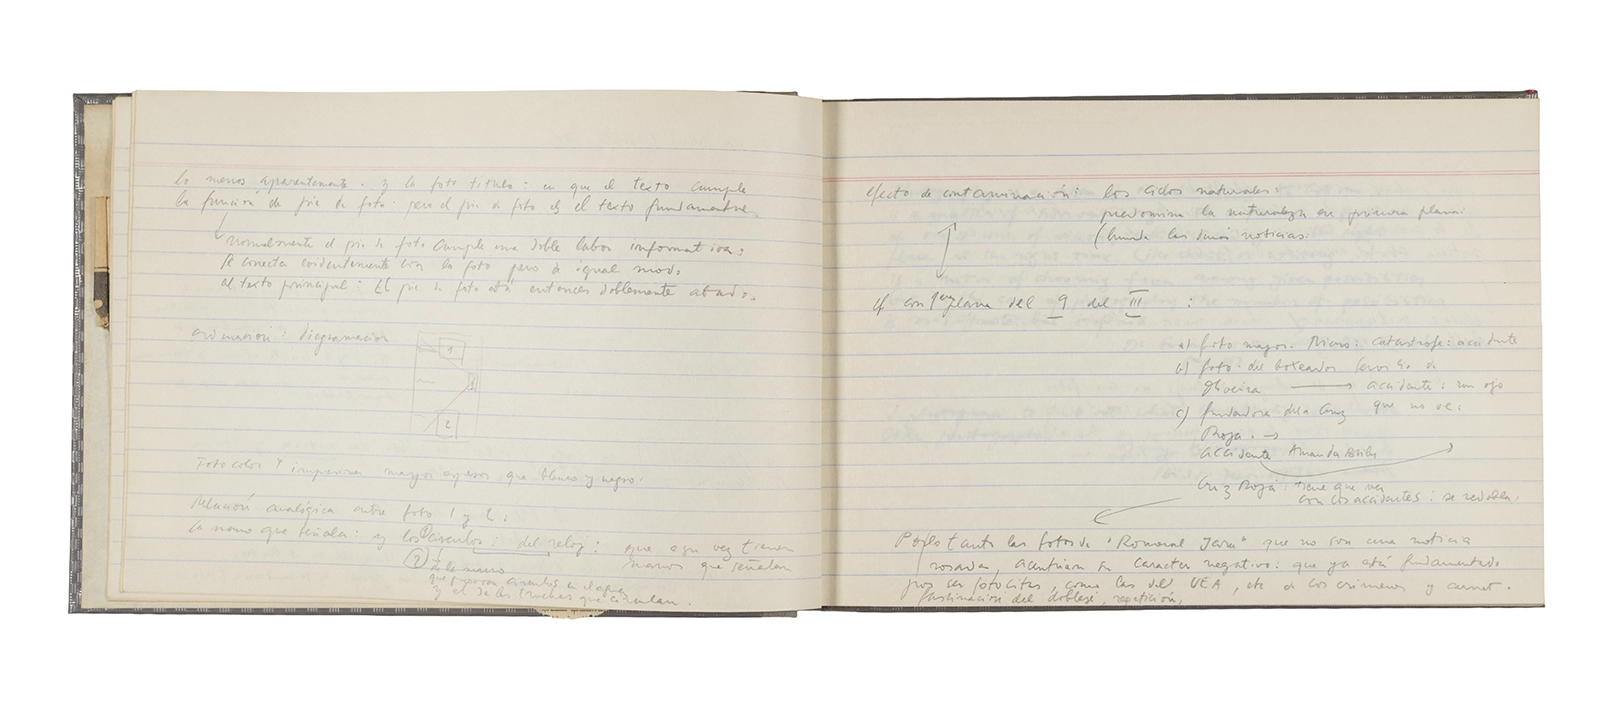 lo menos aparentemente. y la foto titulo: en que el texto cumple
la función de pie de foto: pero el pie de foto es el texto fundamental.
normalmente el pie de foto cumple una doble labor informativa:
se conecta evidentemente con la foto pero de igual modo
al texto principal: El pie de foto está entonces doblemente atado.
ordenación: diagramación
1
3
2
Foto color y impresiona mayor que blanco y negro.
Relación analógica entre foto 1 y 2:
la mano que señala: y los círculos: del reloj: que a su vez tienen
manos que señalan
2 de la mano
que círculos en el agua
y el de las truchas que circulan.
efecto de contaminación: los ciclos naturales:
predomina la naturaleza en primera plana:
(hunde las demás noticias.
cf con 1era plana del 9 del III :
a) foto mayor. Micro: catastrofe: accidente
b) foto: del boxeador Servilio de
Oliveira → accidente: un ojo
que no ve.
c) fundadora de la Cruz
Roja. →
accidente Amanda
Cruz Roja: tiene que ver
con los accidentes: se redobla.
Por lo tanto las fotos de "Romeral Jara" que no son una noticia
rosada, acentúan su caracter negativo: que ya está fundamentado
por ser fotocitas, como las del VEA, etc de los crímenes y carnet.
fascinación del doblese, repetición.